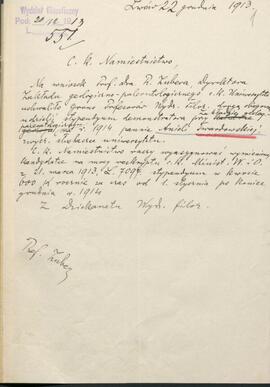 Wydział filozoficzny
Lwów 22 grudnia 1913.
20/12 13
551
C. k. Namiestnictwo,
Na wniosek Prof. dra R. Zubera, Dyrektora
Zakładu geologiczno-paleontologicznego c. k. Uniwersytetu
uchwaliło grono Profesorów Wydz. filoz.
udzielić stypendyum demonstatora przy
na r. 1914 pannie Anieli
zwycz. słuchacze uniwersytetu.
C. k. Namiestnictwo raczy wyasygnować wymienionej
kandydatce na mocy reskryptu c. k. Minist. W. i O.
z 21. marca 1913, L. 7094 stypendyum w kwocie
600 K rocznie za czas od 1. stycznia po koniec
grudnia 1914
Z Dziekanatu Wydz. filoz.
Prof. Zuber